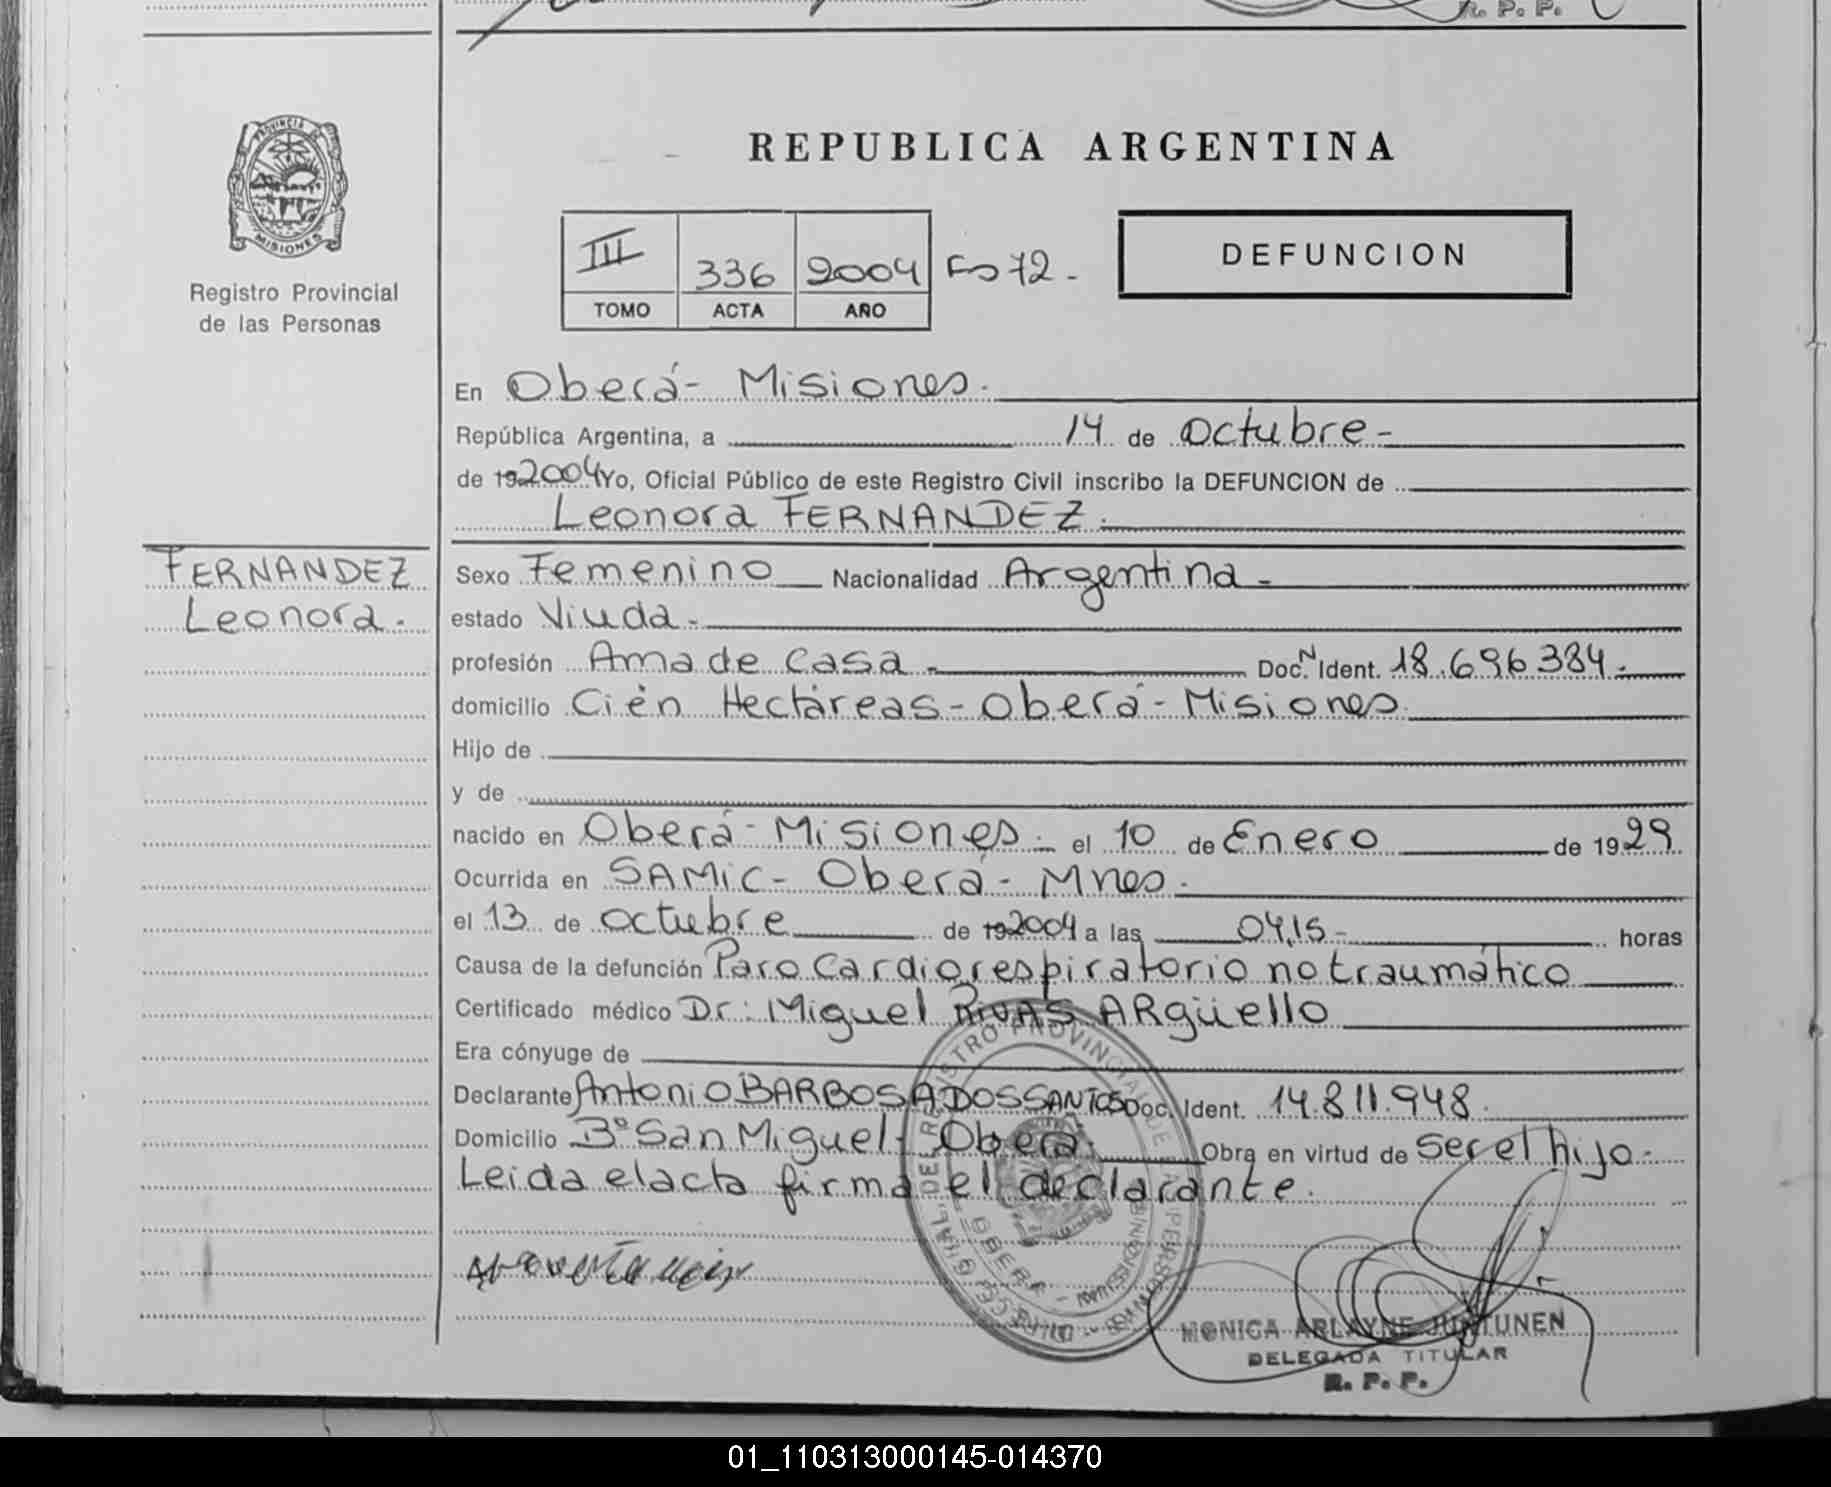 R. P. P.
PROVINCIA DE
MISIONES
Registro Provincial
de las Personas
REPUBLICA ARGENTINA
III 336 2004 Fo 72.-
TOMO ACTA AÑO
DEFUNCION
En Oberá- Misiones.
República Argentina, a 14 de Octubre-
de 19 2004 Yo, Oficial Público de este Registro Civil inscribo la DEFUNCION de
Leonora FERNANDEZ.
FERNANDEZ
Leonora.
Sexo Femenino Nacionalidad Argentina-
estado Viuda-
profesión Ama de casa- Doc. N Ident. 18.696384.
domicilio Cién Hectáreas- Oberá- Misiones
Hijo de
y de
nacido en Oberá- Misiones. el 10 de Enero de 1929
Ocurrida en SAMIC- Oberá- Mnes.
el 13 de octubre de 19 2004 a las 04,15- horas
Causa de la defunción Paro Cardiorespiratorio no traumático
Certificado médico Dr: Miguel RIVAS ARgüello
Era cónyuge de
Declarante Antonio BARBOSA DOS SANTOS Doc. Ident. 14.811.948
Domicilio Bº San Miguel- Oberá. Obra en virtud de ser el hijo-
Leida el acta firma el declarante.
MONICA ARLAYNE JUNTUNEN
DELEGADA TITULAR
R. P. P.
01_110313000145-014370